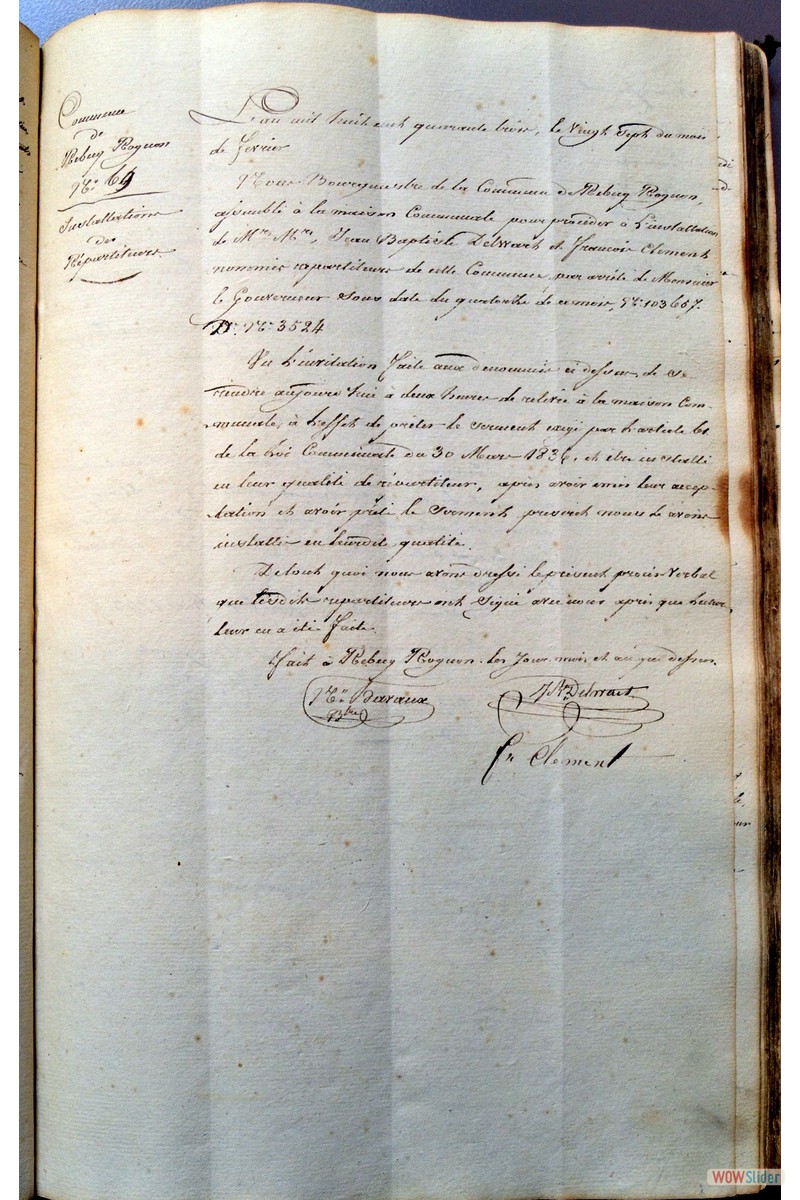 Commune
de
Rebecq Rognon
N° 69
Installations
des
Répartiteurs.
L'an mil huit cent quarante trois, le vingt sept du mois
de fevrier
Nous Bourgmestre de la Commune de Rebecq Rognon,
assemblé à la maison Communale pour procéder à l'installation
de Mrs Mrs, Jean Baptiste Delwart et Francois Clement
nommés repartiteurs de cette Commune, par arrêté de Monsieur
le Gouverneur sous date du quatorze de ce mois, N° 103657.
Dn. N° 3524
Vu l'invitation faite aux denommés ci dessus, de se
rendre aujourd'hui à deux heures de relevée à la maison Com-
munale, à l'effet de prêter le serment exigé par l'article 61
de la loi Communale du 30 Mars 1836, et être installé
en leur qualité de répartiteur, après avoir émis leur accep-
tation et avoir prêté le serment prescrit nous le avons
installé en leurdite qualité.
De tout quoi nous avons dressé le présent procès verbal
que lesdits repartiteurs ont signé avec nous après que lecture
leur en a été faite.
Fait à Rebecq Rognon les jour, mois et an que dessus.
Bavaux
Btre
JBte Delwart
fr Clement
WOWSlider